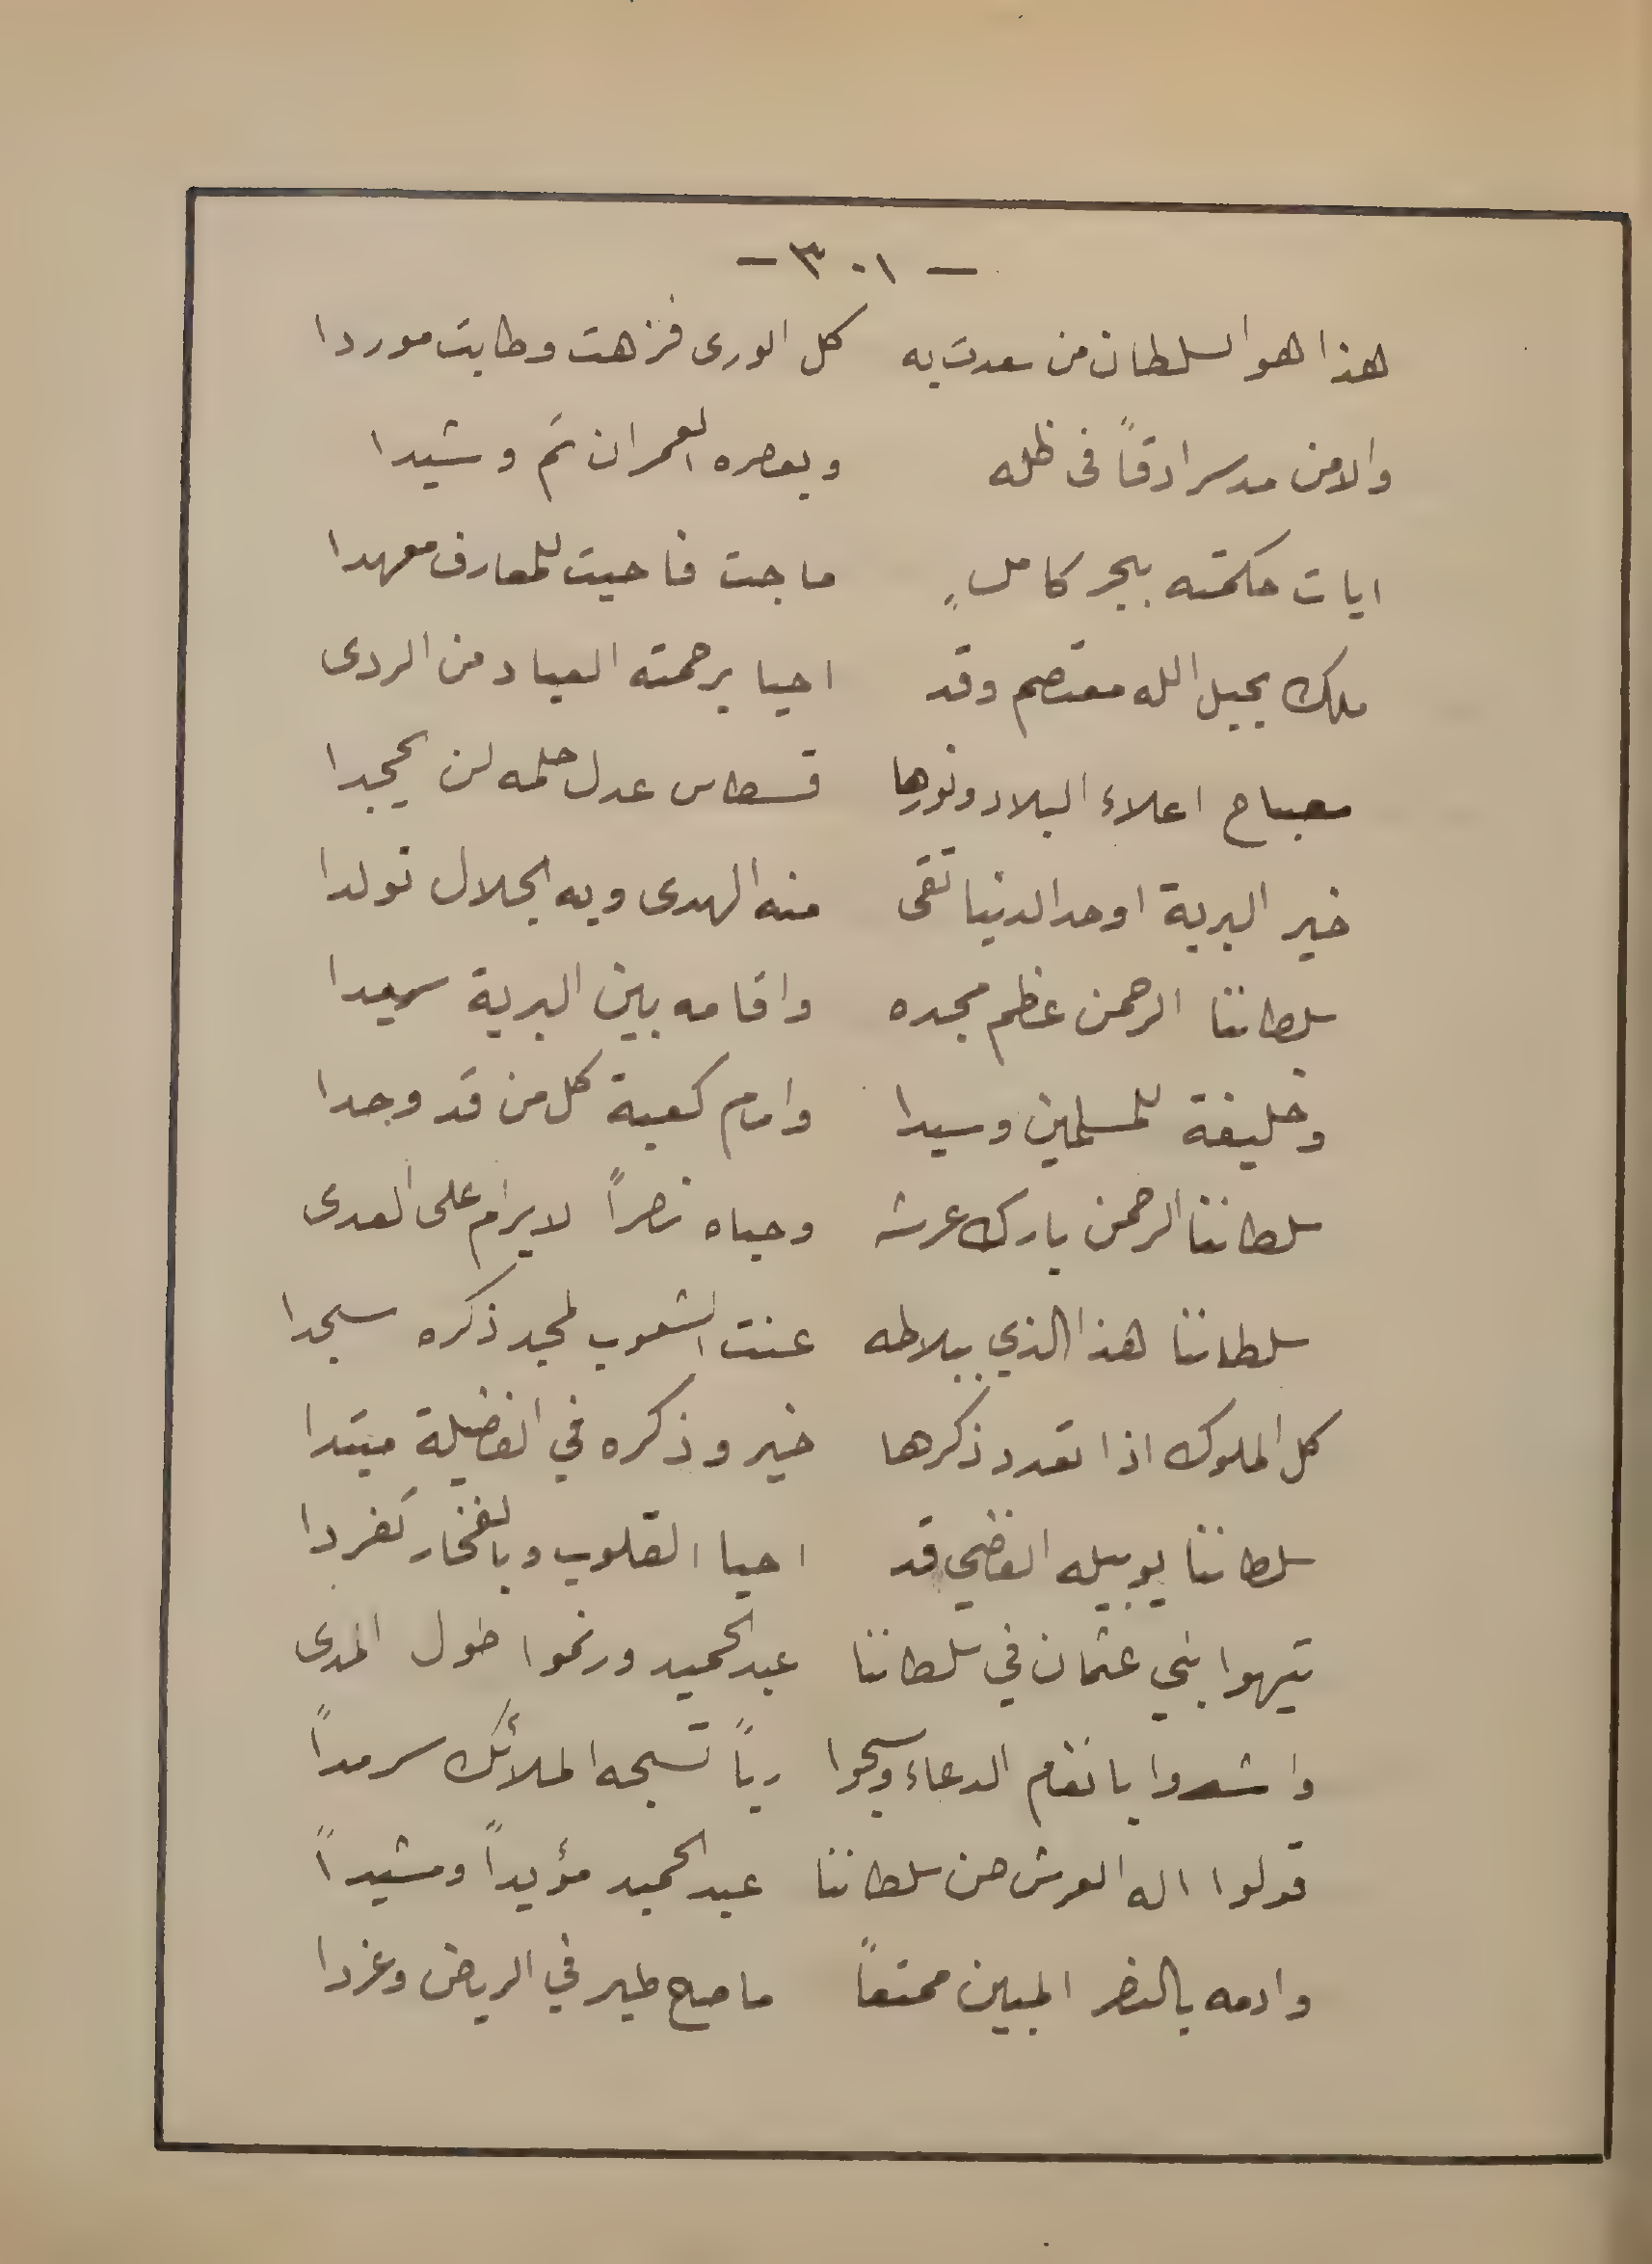 - ٣٠١ -
هذا هو السلطان من سعدت به كل الورى فزهت وطابت موردا
والامن مد سرادقاً فى ظله وبعصره العمران تم وشيدا
ايات حكمته ببحر كاملٍ ماجت فاحيت للمعارف معهدا
ملك بحبل الله معتصم وقد احيا برحمته العباد من الردى
مصباح اعلاء البلاد ونورها قسطاس عدل حلمه لن يجحدا
خير البرية اوحد الدنيا تقى منه الهدى وبه الجلال تولدا
سلطاننا الرحمن عظم مجده واقامه بين البرية سيدا
وخليفة للمسلمين وسيدا وامام كعبة كل من قد وحدا
سلطاننا الرحمن بارك عرشه وحباه نصراً لا يرام على العدى
سلطاننا هذا الذي ببلاطه عنت الشعوب لمجد ذكره سجدا
كل الملوك اذا تعدد ذكرها خير وذكره في الفضيلة مبتدا
سلطاننا يوبيله الفضي قد احيا القلوب وبالفخار تفردا
تيهوا بني عثمان في سلطاننا عبد الحميد ورنموا طول المدى
واشدوا بانغام الدعاء وسبحوا رباً تسبحه الملائك سرمداً
قولوا اله العرش صن سلطاننا عبد الحميد مؤيداً ومشيداً
وادمه بالنصر المبين ممتعاً ما صاح طير في الرياض وغردا